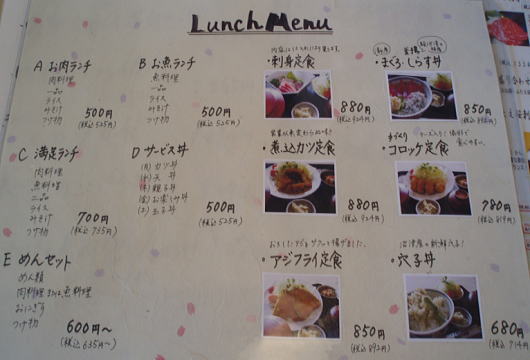 Lunch Menu
A お肉ランチ
肉料理
一品
ライス
みそ汁
つけ物
500円
(税込525円)
B お魚ランチ
魚料理
一品
ライス
みそ汁
つけ物
500円
(税込525円)
C 満足ランチ
肉料理
魚料理
二品
ライス
みそ汁
つけ物
700円
(税込735円)
D サービス丼
(月) カツ丼
(水) 天丼
(木) 親子丼
(金) お楽しみ丼
(土) 玉子丼
500円
(税込525円)
E めんセット
めん類
肉料理または魚料理
おにぎり
つけ物
600円〜
(税込635円〜)
・刺身定食
880円
(税込924円)
・まぐろ・しらす丼
850円
・煮込カツ定食
880円
(税込924円)
手づくり
・コロッケ定食
780円
(税込819円)
・アジフライ定食
850円
(税込892円)
・穴子丼
680円
(税込714円)